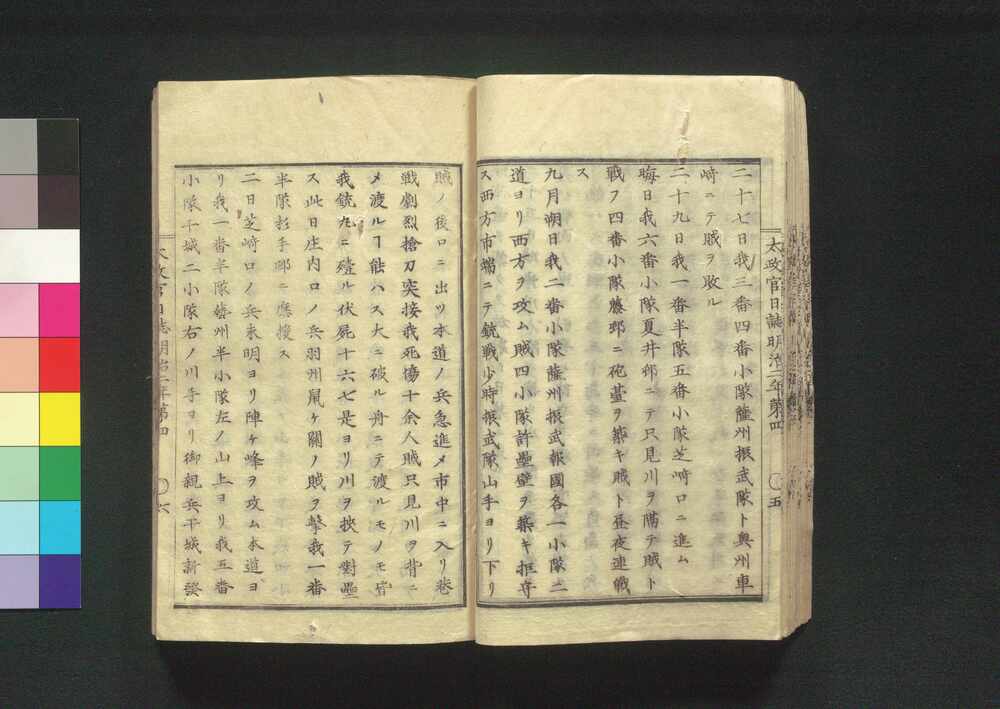 太政官日誌明治二年第四 〇五
二十七日我三番四番小隊薩州振武隊ト奥州車
﨑ニテ賊ヲ敗ル
二十九日我一番半隊五番小隊芝﨑口ニ進ム
晦日我六番小隊夏井邨ニテ只見川ヲ隔テ賊ト
戰フ四番小隊藤邨ニ砲䑓ヲ築キ賊ト昼夜連戰
ス
九月朔日我二番小隊薩州振武報國各一小隊二
道ヨリ西方ヲ攻ム賊四小隊許壘壁ヲ築キ拒守
ス西方市端ニテ銃戰少時振武隊山手ヨリ下リ
賊ノ後ロニ出ツ本道ノ兵急進メ市中ニ入リ巷
戰劇烈搶刀突接我死傷十余人賊只見川ヲ背ニ
メ渡ルヿ能ハス大ニ破ル舟ニテ渡ルモノモ皆
我銃丸ニ殪ル伏屍十六七是ヨリ川ヲ挾テ對壘
ス此日庄内口ノ兵羽州鼠ケ關ノ賊ヲ撃我一番
半隊杉手邨ニ應援ス
二日芝﨑口ノ兵未明ヨリ陣ケ峰ヲ攻ム本道ヨ
リ我一番半隊藝州半小隊左ノ山上ヨリ我五番
小隊干城二小隊右ノ川手ヨリ御親兵干城新發
太政官日誌明治二年第四 〇六